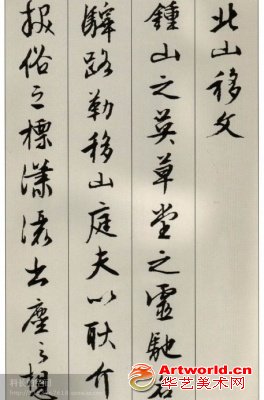 北山移文
鍾山之英草堂之靈馳烟
驛路勒移山庭夫以耿介
拔俗之標瀟灑出塵之想
Artworld.cn
华艺美术网